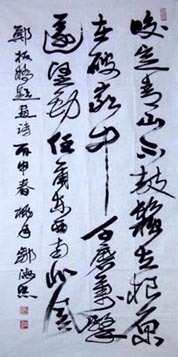 咬定青山不放鬆立根原
在破岩中千磨萬擊
還堅勁任爾東西南北風
鄭板橋題畫詩丙申春